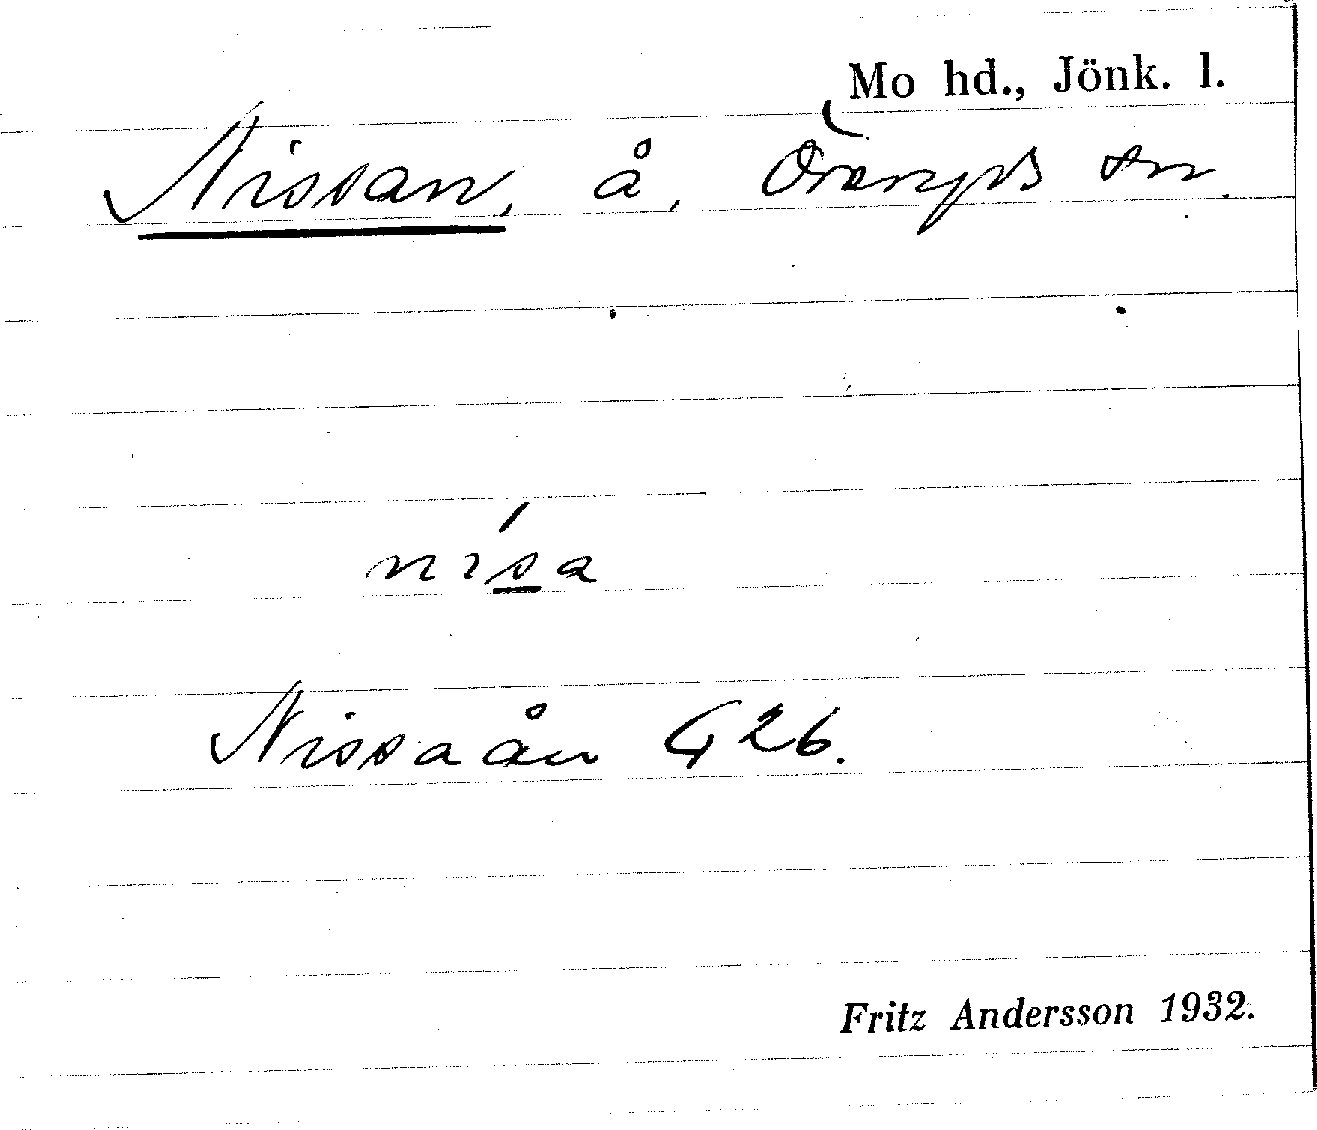 Mo hd., Jönk. l.
Nissan, å, Öreryds sn.
nísa
Nissaån G 26.
Fritz Andersson 1932.